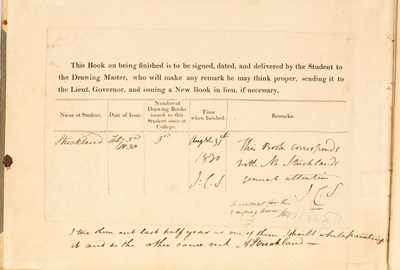 This Book on being finished is to be signed, dated, and delivered by the Student to
the Drawing Master, who will make any remark he may think proper, sending it to
the Lieut. Governor, and issuing a New Book in lieu, if necessary.
Name of Student.
Date of Issue.
Number of
Drawing Books
issued to this
Student since at
College.
Time
when finished.
Remarks.
Strickland
Feby 3rd
1830
3rd
Augst 31st
1830
J.C.S
This Book corresponds
with Mr Stricklands
general attention
J.C.S
to account for the
2 missing leaves
I tore them out last half year as one of them I spoilt whilst
it and so the other came out AStrickland